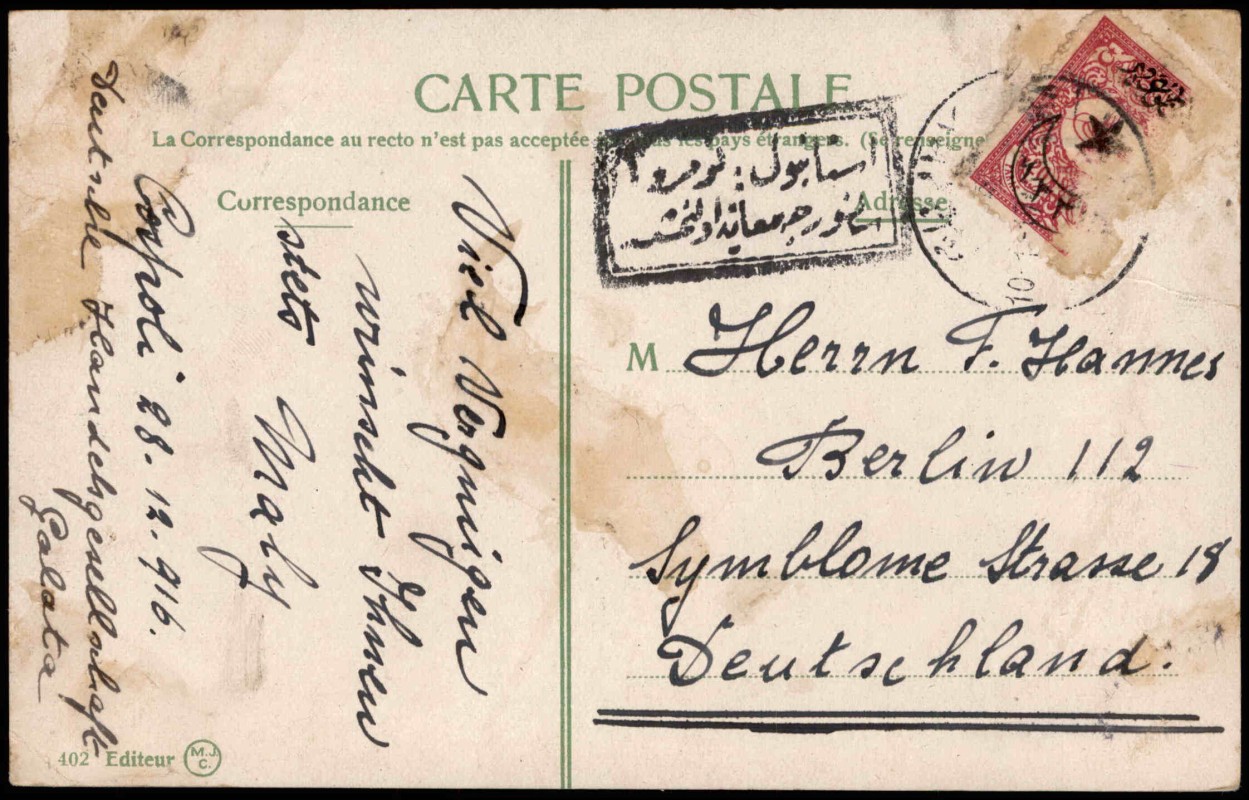 CARTE POSTALE
La Correspondance au recto n'est pas acceptée les pays étrangers. (Se renseigne
Correspondance
Adresse
Viel Vergnügen
wünscht Ihnen
stets Maly
Cospoli 28.12.916.
Deutsche Handelsgesellschaft
Galata
استانبول
M Herrn F. Hannes
Berlin 112
Symblome Strasse 18
Deutschland.
402 Editeur M.J.C.